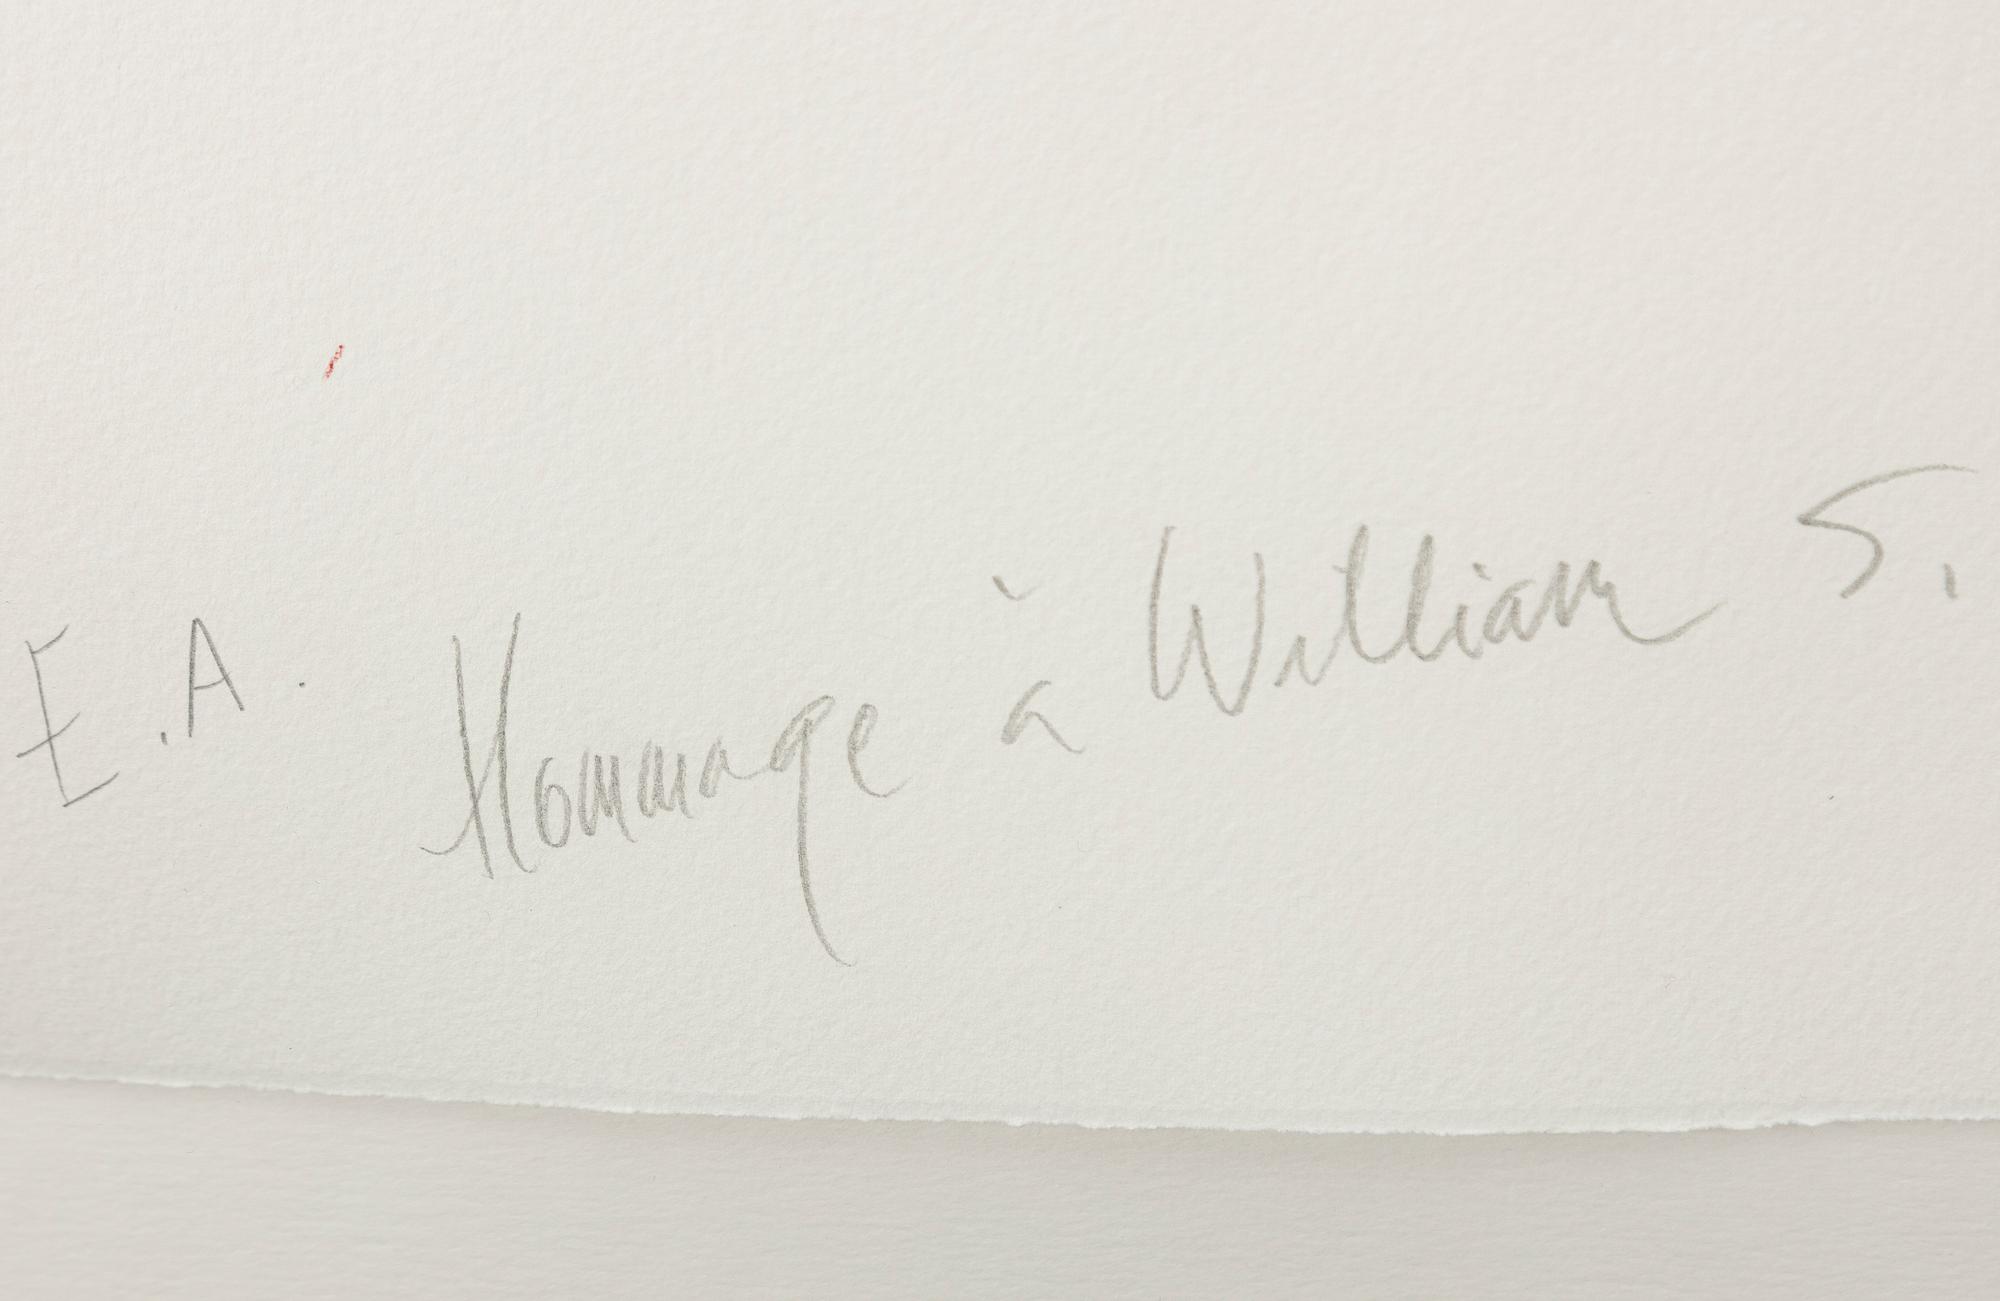 E.A. Hommage à William S.